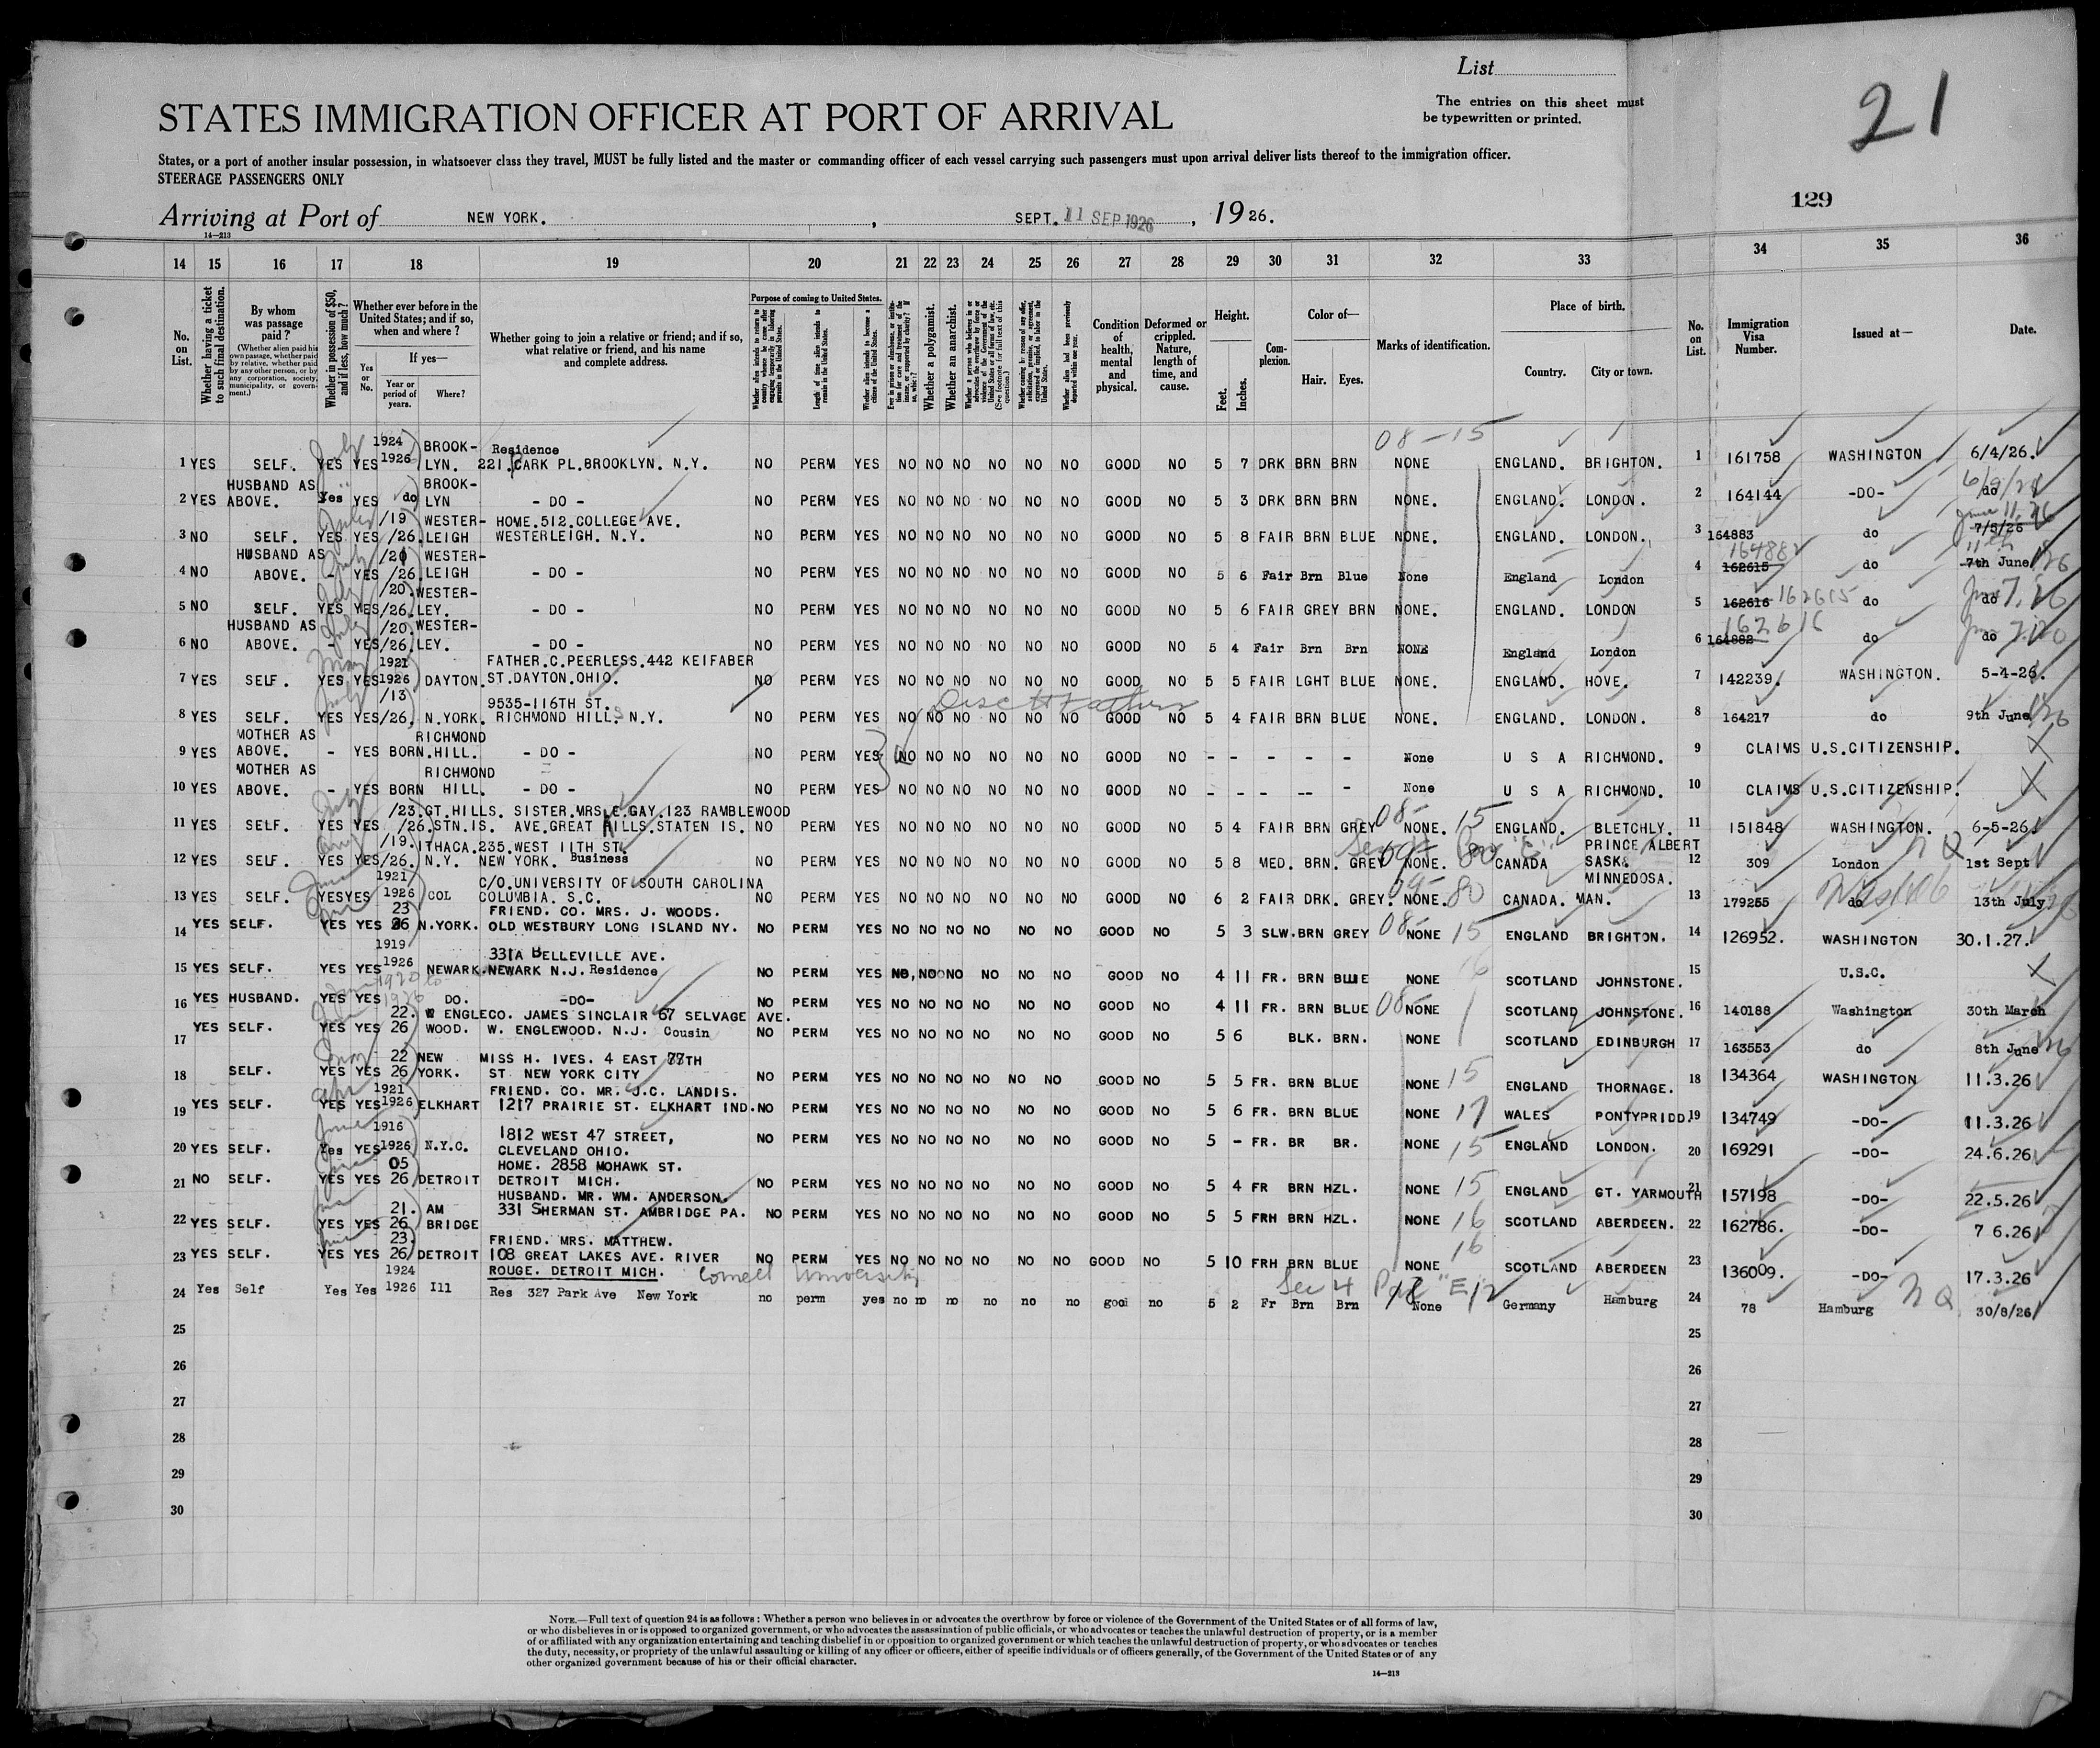 List
The entries on this sheet must
be typewritten or printed.
21
STATES IMMIGRATION OFFICER AT PORT OF ARRIVAL
States, or a port of another insular possession, in whatsoever class they travel, MUST be fully listed and the master or commanding officer of each vessel carrying such passengers must upon arrival deliver lists thereof to the immigration officer.
STEERAGE PASSENGERS ONLY
129
Arriving at Port of NEW YORK. , SEPT. 11 SEP 1926 , 1926.
14—213
14 15 16 17 18 19 20 21 22 23 24 25 26 27 28 29 30 31 32 33 34 35 36
No. on List.
Whether having a ticket to such final destination.
By whom was passage paid?
(Whether alien paid his own passage, whether paid by relative, whether paid by any other person, or by any corporation, society, municipality, or government.)
Whether in possession of $50, and if less, how much?
Whether ever before in the United States; and if so, when and where?
Yes or No.
If yes—
Year or period of years.
Where?
Whether going to join a relative or friend; and if so, what relative or friend, and his name and complete address.
Purpose of coming to United States.
Whether alien intends to return to country whence he came after engaging temporarily in laboring pursuits in the United States.
Length of time alien intends to remain in the United States.
Whether alien intends to become a citizen of the United States.
Whether a polygamist.
Whether an anarchist.
Condition of health, mental and physical.
Deformed or crippled. Nature, length of time, and cause.
Height.
Feet. Inches.
Complexion.
Color of—
Hair. Eyes.
Marks of identification.
Place of birth.
Country. City or town.
No. on List.
Immigration Visa Number.
Issued at—
Date.
08-15
1 YES SELF. July YES YES 1924 1926 BROOK-LYN. Residence 221.PARK PL.BROOKLYN. N.Y. NO PERM YES NO NO NO NO NO NO GOOD NO 5 7 DRK BRN BRN NONE ENGLAND. BRIGHTON. 1 161758 WASHINGTON 6/4/26.
2 YES HUSBAND AS ABOVE. Yes YES do BROOK-LYN - DO - NO PERM YES NO NO NO NO NO NO GOOD NO 5 3 DRK BRN BRN NONE. ENGLAND. LONDON. 2 164144 -DO- do
3 NO SELF. YES YES /19 /26. WESTER-LEIGH HOME.512.COLLEGE AVE. WESTERLEIGH. N.Y. NO PERM YES NO NO NO NO NO NO GOOD NO 5 8 FAIR BRN BLUE NONE. ENGLAND. LONDON. 3 164883 do 7/6/26 June 11, 26
4 NO HUSBAND AS ABOVE. - YES /26. WESTER-LEIGH - DO - NO PERM YES NO NO NO NO NO NO GOOD NO 5 6 Fair Brn Blue None England London 4 162615 164882 do 7th June 11th /26
5 NO SELF. YES YES /20 /26. WESTER-LEY. - DO - NO PERM YES NO NO NO NO NO NO GOOD NO 5 6 FAIR GREY BRN NONE. ENGLAND. LONDON 5 162616 162615 do do June 7, 26
6 NO HUSBAND AS ABOVE. - YES /20 /26. WESTER-LEY. - DO - NO PERM YES NO NO NO NO NO NO GOOD NO 5 4 Fair Brn Brn NONE England London 6 164882 162616 do do
7 YES SELF. May YES YES 1921 1926 DAYTON. FATHER.C.PEERLESS.442 KEIFABER ST.DAYTON.OHIO. NO PERM YES NO NO NO NO NO NO GOOD NO 5 5 FAIR LGHT BLUE NONE. ENGLAND. HOVE. 7 142239. WASHINGTON. 5-4-26.
8 YES SELF. July YES YES /13 /26. N.YORK. 9535-116TH ST. RICHMOND HILLS N.Y. NO PERM YES NO NO NO NO NO NO GOOD NO 5 4 FAIR BRN BLUE NONE. ENGLAND. LONDON. 8 164217 do 9th June /26
9 YES MOTHER AS ABOVE. - YES BORN. RICHMOND HILL. - DO - NO PERM YES NO NO NO NO NO NO GOOD NO - - - - - None U S A RICHMOND. 9 CLAIMS U.S.CITIZENSHIP. X
10 YES MOTHER AS ABOVE. - YES BORN RICHMOND HILL. - DO - NO PERM YES NO NO NO NO NO NO GOOD NO - - - -- - None U S A RICHMOND. 10 CLAIMS U.S.CITIZENSHIP. X
11 YES SELF. July YES YES /23. /26. GT.HILLS. STN.IS. SISTER.MRS.E.GAY.123 RAMBLEWOOD AVE.GREAT KILLS.STATEN IS. NO PERM YES NO NO NO NO NO NO GOOD NO 5 4 FAIR BRN GREY 08- NONE. 15 ENGLAND. BLETCHLY. 11 151848 WASHINGTON. 6-5-26.
12 YES SELF. YES YES /19. /26. ITHACA. N.Y. 235.WEST 11TH ST. NEW YORK. Business NO PERM YES NO NO NO NO NO NO GOOD NO 5 8 MED. BRN. GREY NONE. 80 CANADA PRINCE ALBERT SASK. 12 309 London N Q 1st Sept
13 YES SELF. June YES YES 1921 1926 COL C/O.UNIVERSITY OF SOUTH CAROLINA COLUMBIA. S.C. NO PERM YES NO NO NO NO NO NO GOOD NO 6 2 FAIR DRK. GREY. NONE. 80 CANADA. MAN. MINNEDOSA. 13 179255 do 13th July
14 YES SELF. YES YES 23 26 N.YORK. FRIEND. CO. MRS. J. WOODS. OLD WESTBURY LONG ISLAND NY. NO PERM YES NO NO NO NO NO NO GOOD NO 5 3 SLW.BRN GREY 08- NONE 15 ENGLAND BRIGHTON. 14 126952. WASHINGTON 30.1.27.
15 YES SELF. YES YES 1919 1926 NEWARK. 331A BELLEVILLE AVE. NEWARK N.J. Residence NO PERM YES NO, NO NO NO NO NO GOOD NO 4 11 FR. BRN BLUE NONE 16 SCOTLAND JOHNSTONE. 15 U.S.C. X
16 YES HUSBAND. YES YES 1920 to 1926 DO. -DO- NO PERM YES NO NO NO NO NO NO GOOD NO 4 11 FR. BRN BLUE 08- NONE SCOTLAND JOHNSTONE. 16 140188 Washington 30th March
17 YES SELF. YES YES 22. 26 W ENGLE WOOD. CO. JAMES SINCLAIR 67 SELVAGE AVE. W. ENGLEWOOD. N.J. Cousin NO PERM YES NO NO NO NO NO NO GOOD NO 5 6 BLK. BRN. NONE SCOTLAND EDINBURGH 17 163553 do 8th June /26
18 SELF. May YES YES 22 26 NEW YORK. MISS H. IVES. 4 EAST 77TH ST. NEW YORK CITY NO PERM YES NO NO NO NO NO NO GOOD NO 5 5 FR. BRN BLUE NONE 15 ENGLAND THORNAGE. 18 134364 WASHINGTON 11.3.26
19 YES SELF. Apr YES YES 1921 1926 ELKHART FRIEND. CO. MR. J.C. LANDIS. 1217 PRAIRIE ST. ELKHART IND. NO PERM YES NO NO NO NO NO NO GOOD NO 5 6 FR. BRN BLUE NONE 17 WALES PONTYPRIDD. 19 134749 -DO- 11.3.26
20 YES SELF. June Yes YES 1916 1926 N.Y.C. 1812 WEST 47 STREET, CLEVELAND OHIO. NO PERM YES NO NO NO NO NO NO GOOD NO 5 - FR. BR BR. NONE 15 ENGLAND LONDON. 20 169291 -DO- 24.6.26
21 NO SELF. YES YES 05 26 DETROIT HOME. 2858 MOHAWK ST. DETROIT MICH. NO PERM YES NO NO NO NO NO NO GOOD NO 5 4 FR BRN HZL. NONE 15 ENGLAND GT. YARMOUTH 21 157198 -DO- 22.5.26
22 YES SELF. YES YES 21. 26 AM BRIDGE HUSBAND. MR. WM. ANDERSON. 331 SHERMAN ST. AMBRIDGE PA. NO PERM YES NO NO NO NO NO NO GOOD NO 5 5 FRH BRN HZL. NONE 16 SCOTLAND ABERDEEN. 22 162786. -DO- 7 6.26
23 YES SELF. YES YES 23. 26 DETROIT FRIEND. MRS. MATTHEW. 108 GREAT LAKES AVE. RIVER ROUGE. DETROIT MICH. NO PERM YES NO NO NO NO NO NO GOOD NO 5 10 FRH BRN BLUE NONE 16 SCOTLAND ABERDEEN 23 136009. -DO- 17.3.26
Cornell University
Sec 4 Par "E"
24 Yes Self Yes Yes 1924 1926 Ill Res 327 Park Ave New York no perm yes no no no no no no good no 5 2 Fr Brn Brn None Germany Hamburg 24 78 Hamburg N Q 30/8/26
25 25
26 26
27 27
28 28
29 29
30 30
NOTE.—Full text of question 24 is as follows: Whether a person who believes in or advocates the overthrow by force or violence of the Government of the United States or of all forms of law,
or who disbelieves in or is opposed to organized government, or who advocates the assassination of public officials, or who advocates or teaches the unlawful destruction of property, or is a member
of or affiliated with any organization entertaining and teaching disbelief in or opposition to organized government or which teaches the unlawful destruction of property, or who advocates or teaches
the duty, necessity, or propriety of the unlawful assaulting or killing of any officer or officers, either of specific individuals or of officers generally, of the Government of the United States or of any
other organized government because of his or their official character.
14—213